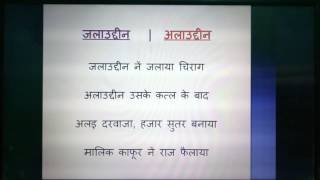 जलाउद्दीन | अलाउद्दीन
जलाउद्दीन नें जलाया चिराग
अलाउद्दीन उसके कत्ल के बाद
अलइ दरवाजा, हजार सुतर बनाया
मालिक काफूर ने राज फैलाया